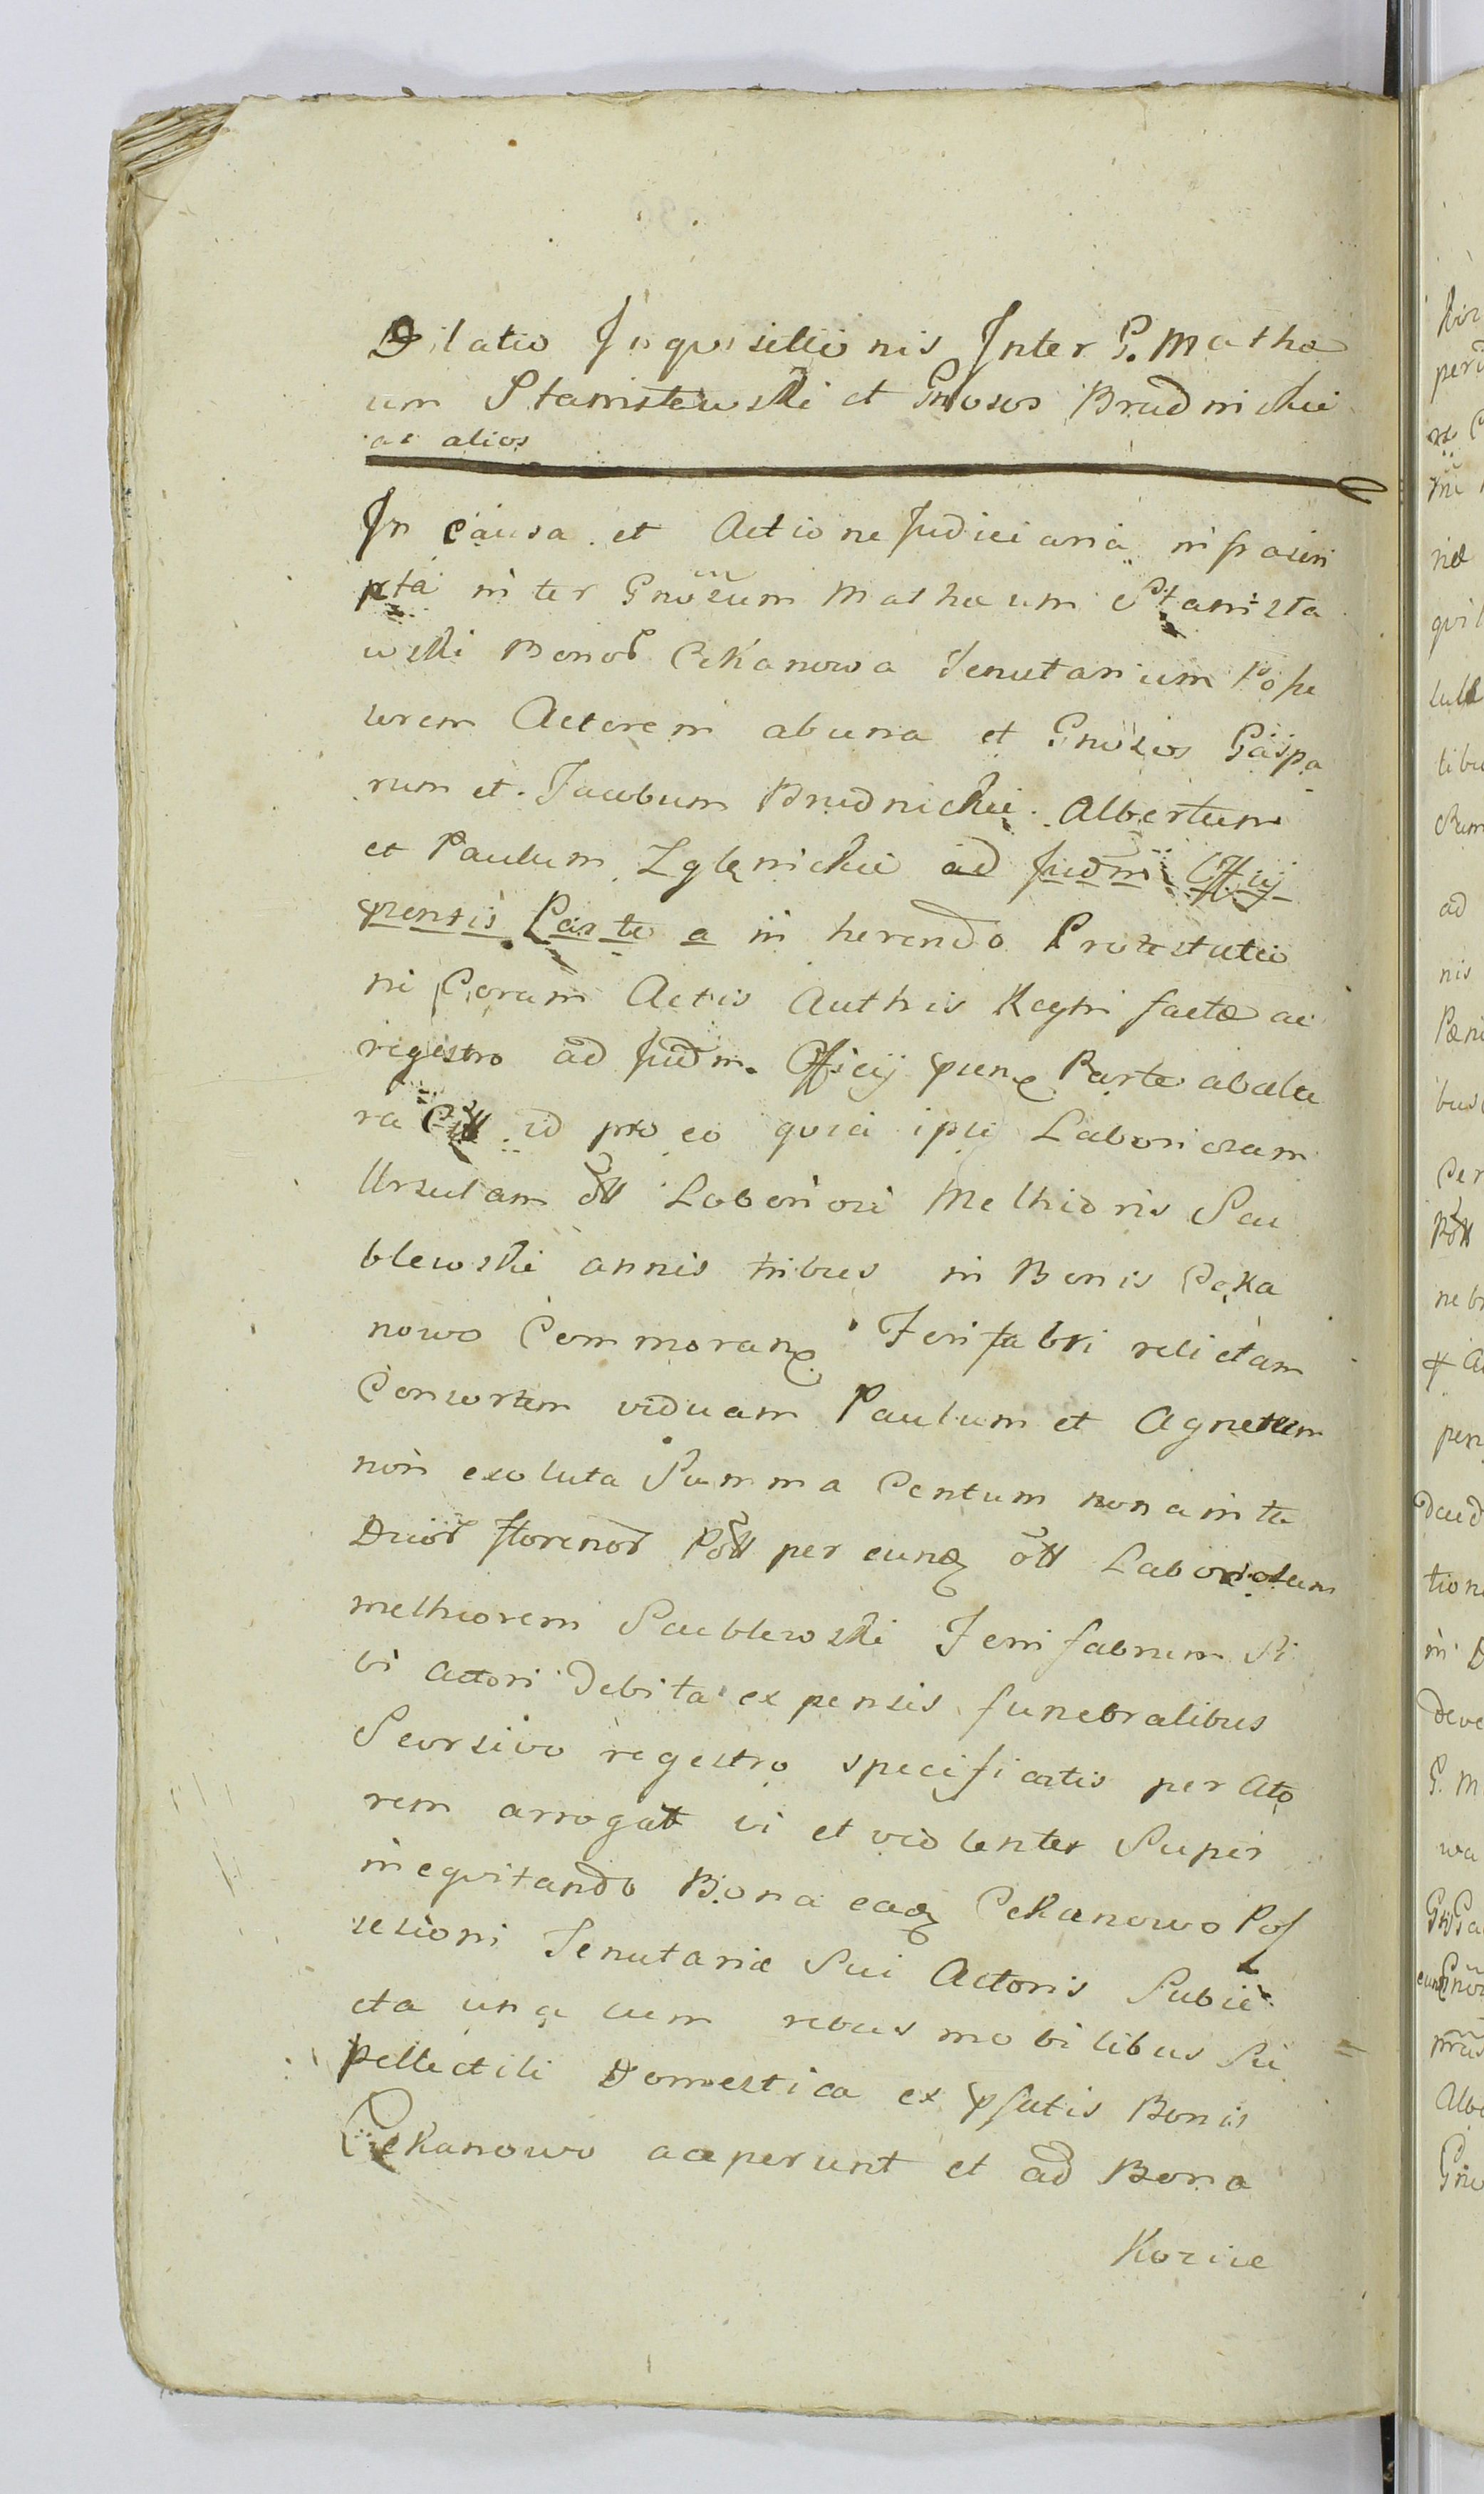 Dilatio Inquisitionis Inter G. Mathæ
um Stanisławski et Gnosos Brudnickie
ac alios
In causa et Actione Judiciaria infrascri
pta inter Gnosum Mathæum Stanisła
wski Bonor Cekanowa Tenutarium Posse
sorem Actorem ab una et Gnosos Gaspa
rum et Jacobum Brudnickie Albertum
et Paulum Zglenickie ad Judm Officij
pensis Parte a in herendo Protestatio
ni Coram Actis Authis Regni factæ ac
registro ad Judm Officij pune Parte ab alte
ra Citt id pro eo quia ipsi Laboriosam
Ursulam ott Laboriosi Melhioris Sau
blewski annis tribus in Bonis Ceka
nowo Commorane Ferifabri relictam
Consortem viduam Paulum et Agnetem
non exoluta Summa Centum nonainta
Duor florenor Poll per eunq ott Laboriosum
melhiorem Saublewski Ferrifabrum Si
bi actori Debita expensis funebralibus
Seorsivo regestro specificatis per Acto
rem arrogatt vi et violenter Super
inequitando Bona eaq Cekanowo Pos
sesioni Tenutariæ Sui Actoris Subie
cta una cum rebus mobilibus Su
pellectili Domestica ex psatis Bonis
Cekanowo aceperunt et ad Bona
Kozice